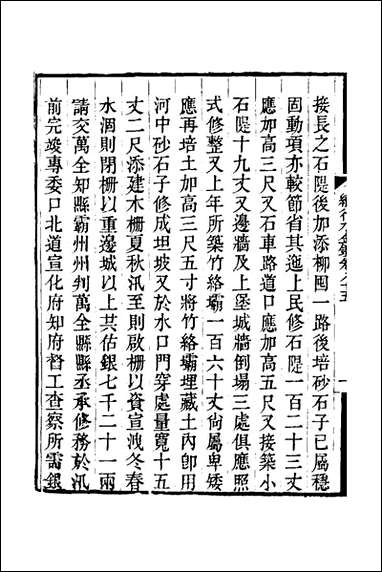 接長之石隄後加添柳囤一路後培砂石子已屬穩
固動項亦較節省其迤上民修石隄一百二十三丈
應加高三尺又石車路道口應加高五尺又接築小
石隄十九丈又邊牆及上堡城牆倒塌三處俱應照
式修整又上年所築竹絡壩一百六十丈尙屬卑矮
應再培土加高三尺五寸將竹絡壩埋藏土內卽用
河中砂石子修成坦坡又於水口門穿處量寬十五
丈二尺添建木柵夏秋汛至則啟柵以資宣洩冬春
水涸則閉柵以重邊城以上共估銀七千二十一兩
請交萬全知縣霸州州判萬全縣縣丞承修務於汛
前完竣專委口北道宣化府知府督工查察所需銀
續行水金鑑卷
五
一